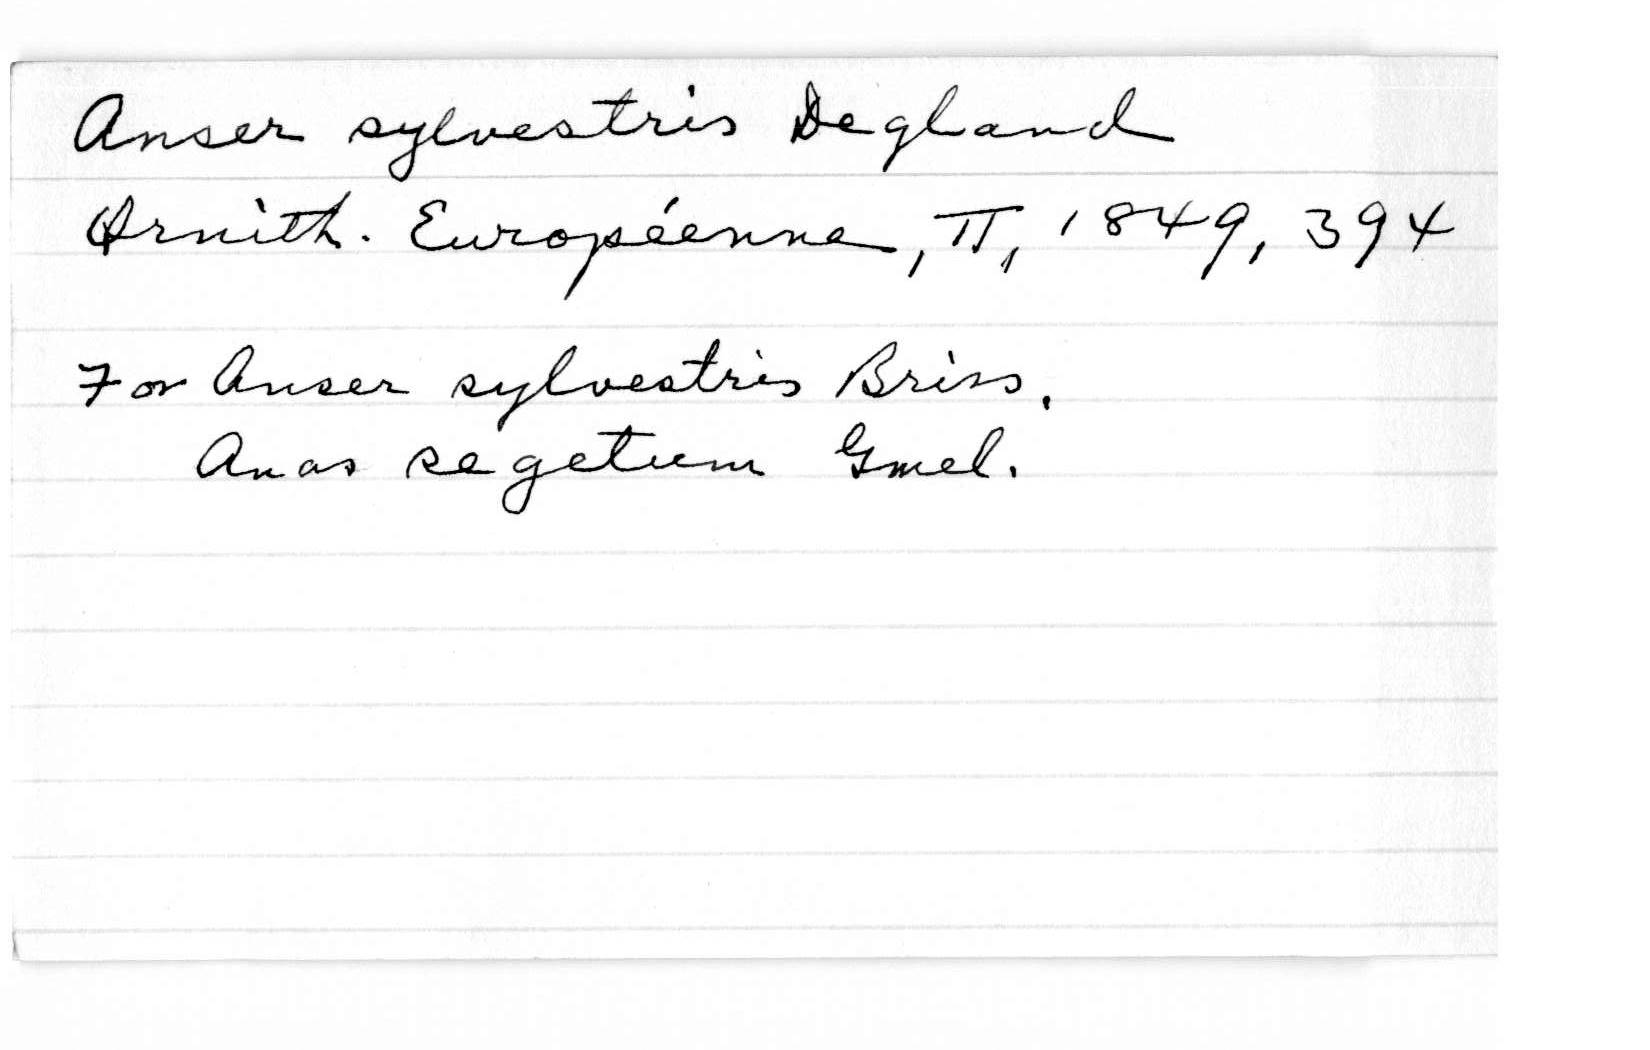 Anser sylvestris Degland
Ornith. Européenne, II, 1849, 394
For Anser sylvestris Briss.
Anas segetum Gmel.